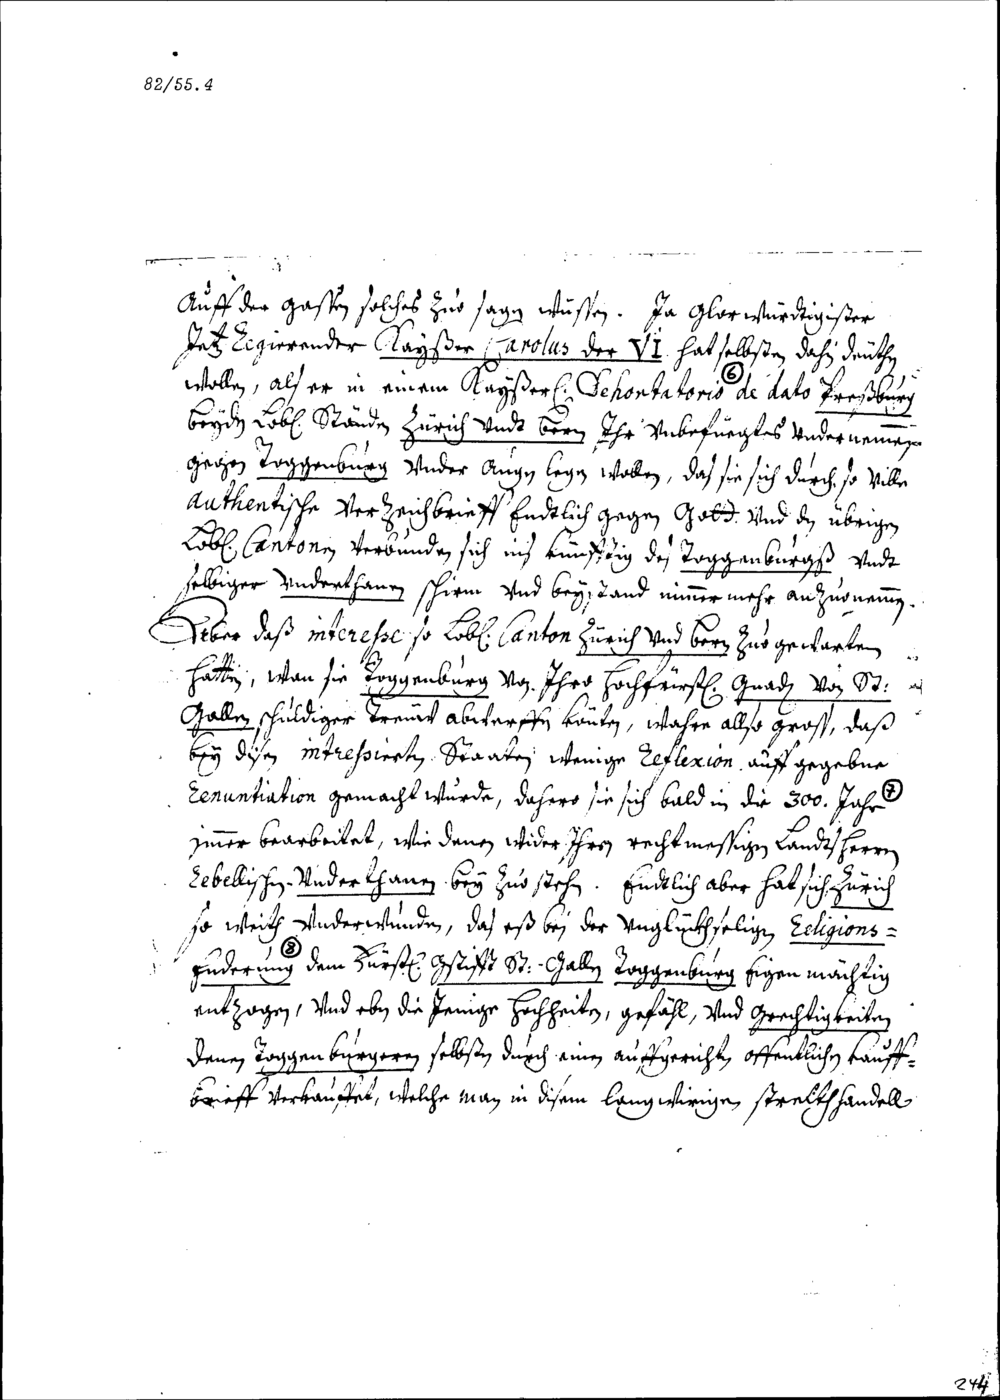 82/55.4
Auff der gassen solches Zuo sagen wüssen. Ja Glorwürdtigister
Jetz Regierender Kayßer Carolus der VI hat selbsten dahin deüthen
wollen, als er in einem Kayßerl: Dehortatorio ⑥ de dato Preßburg
beyden Lobl. Ständen Zürich Undt Bern Ihr Unbefuegtes Undernemen
gegen Toggenburg Under Augen legen wollen, das sie sich durch so Ville
authentische Verzeichbrieff Endtlich gegen Gott Und den übrigen
Lobl. Cantonen Verbunden sich ins künfftig des Toggenburgß Undt
selbiger Underthanen schirm Und beystand nimmermehr anZuonemmen.
Aber daß interesse so Lobl. Canton Zürich Und Bern Zuo gewarten
hatten, wan sie Toggenburg Von Ihro Hochfürstl. Gnaden Von St:
Gallen schuldiger Treüw abwerffen könten, wahre allso gross, daß
bey disen intressierten Staaten wenige Reflexion auff gegebne
Renuntiation gemacht wurde, dahero sie sich bald in die 300. Jahr ⑦
jmer bearbeitet, wie denen wider Ihren rechtmessigen Landtsherren
Rebellischen Underthanen bey Zuo stehen. Endtlich aber hat sich Zürich
so weith Underwunden, das eß bei der Unglückhseligen Religions=
enderung ⑧ dem Fürstl. Gstifft St: Gallen Toggenburg Eigenmächtig
entzogen, Und eben die Jenige Hochheiten, gefähl, Und Grechtigkeiten
denen Toggenburgeren selbsten durch einen auffgerichten offentlichen kauff=
brieff Verkauffet, welche man in disem langwirigen streithhandell
244